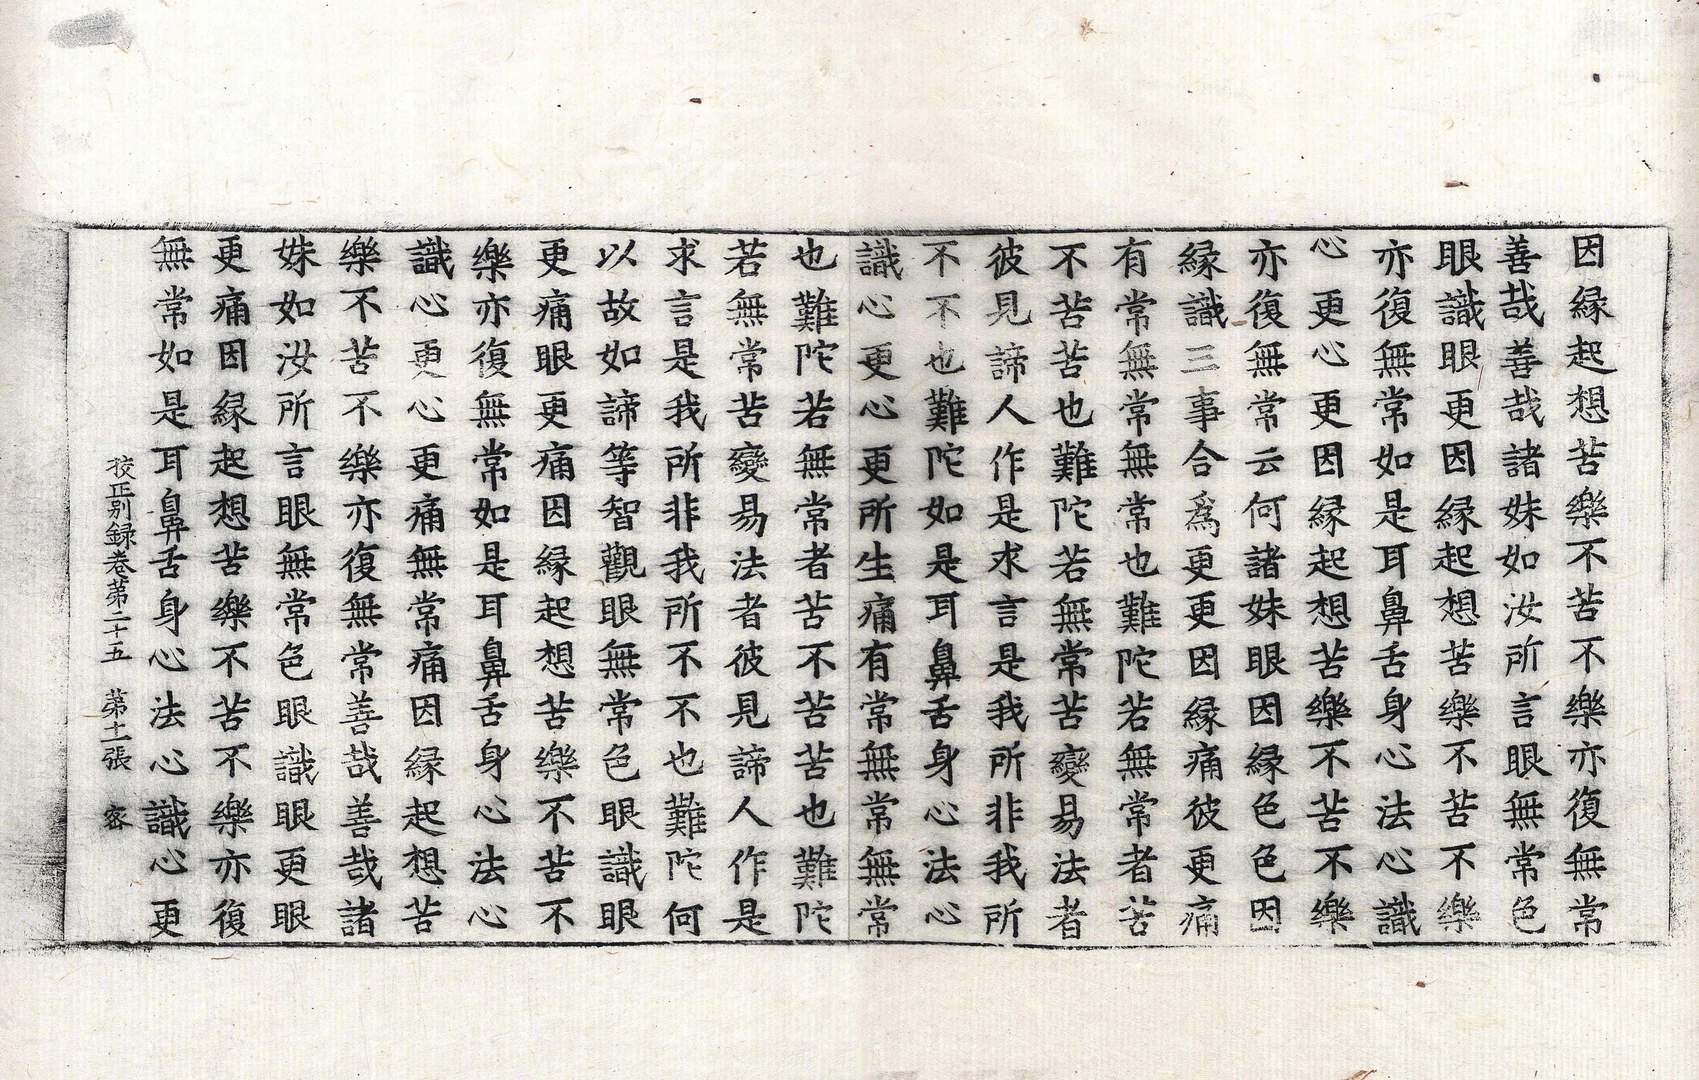 因縁起想苦樂不苦不樂亦復無常
善哉善哉諸妹如汝所言眼無常色
眼識眼更因縁起想苦樂不苦不樂
亦復無常如是耳鼻舌身心法心識
心更心更因縁起想苦樂不苦不樂
亦復無常云何諸妹眼因縁色色因
縁識三事合爲更更因縁痛彼更痛
有常無常無常也難陀若無常者苦
不苦苦也難陀若無常苦變易法者
彼見諦人作是求言是我所非我所
不不也難陀如是耳鼻舌身心法心
識心更心更所生痛有常無常無常
也難陀若無常者苦不苦苦也難陀
若無常苦變易法者彼見諦人作是
求言是我所非我所不不也難陀何
以故如諦等智觀眼無常色眼識眼
更痛眼更痛因縁起想苦樂不苦不
樂亦復無常如是耳鼻舌身心法心
識心更心更痛無常痛因縁起想苦
樂不苦不樂亦復無常善哉善哉諸
妹如汝所言眼無常色眼識眼更眼
更痛因縁起想苦樂不苦不樂亦復
無常如是耳鼻舌身心法心識心更
校正别録卷第二十五　第十一張　密